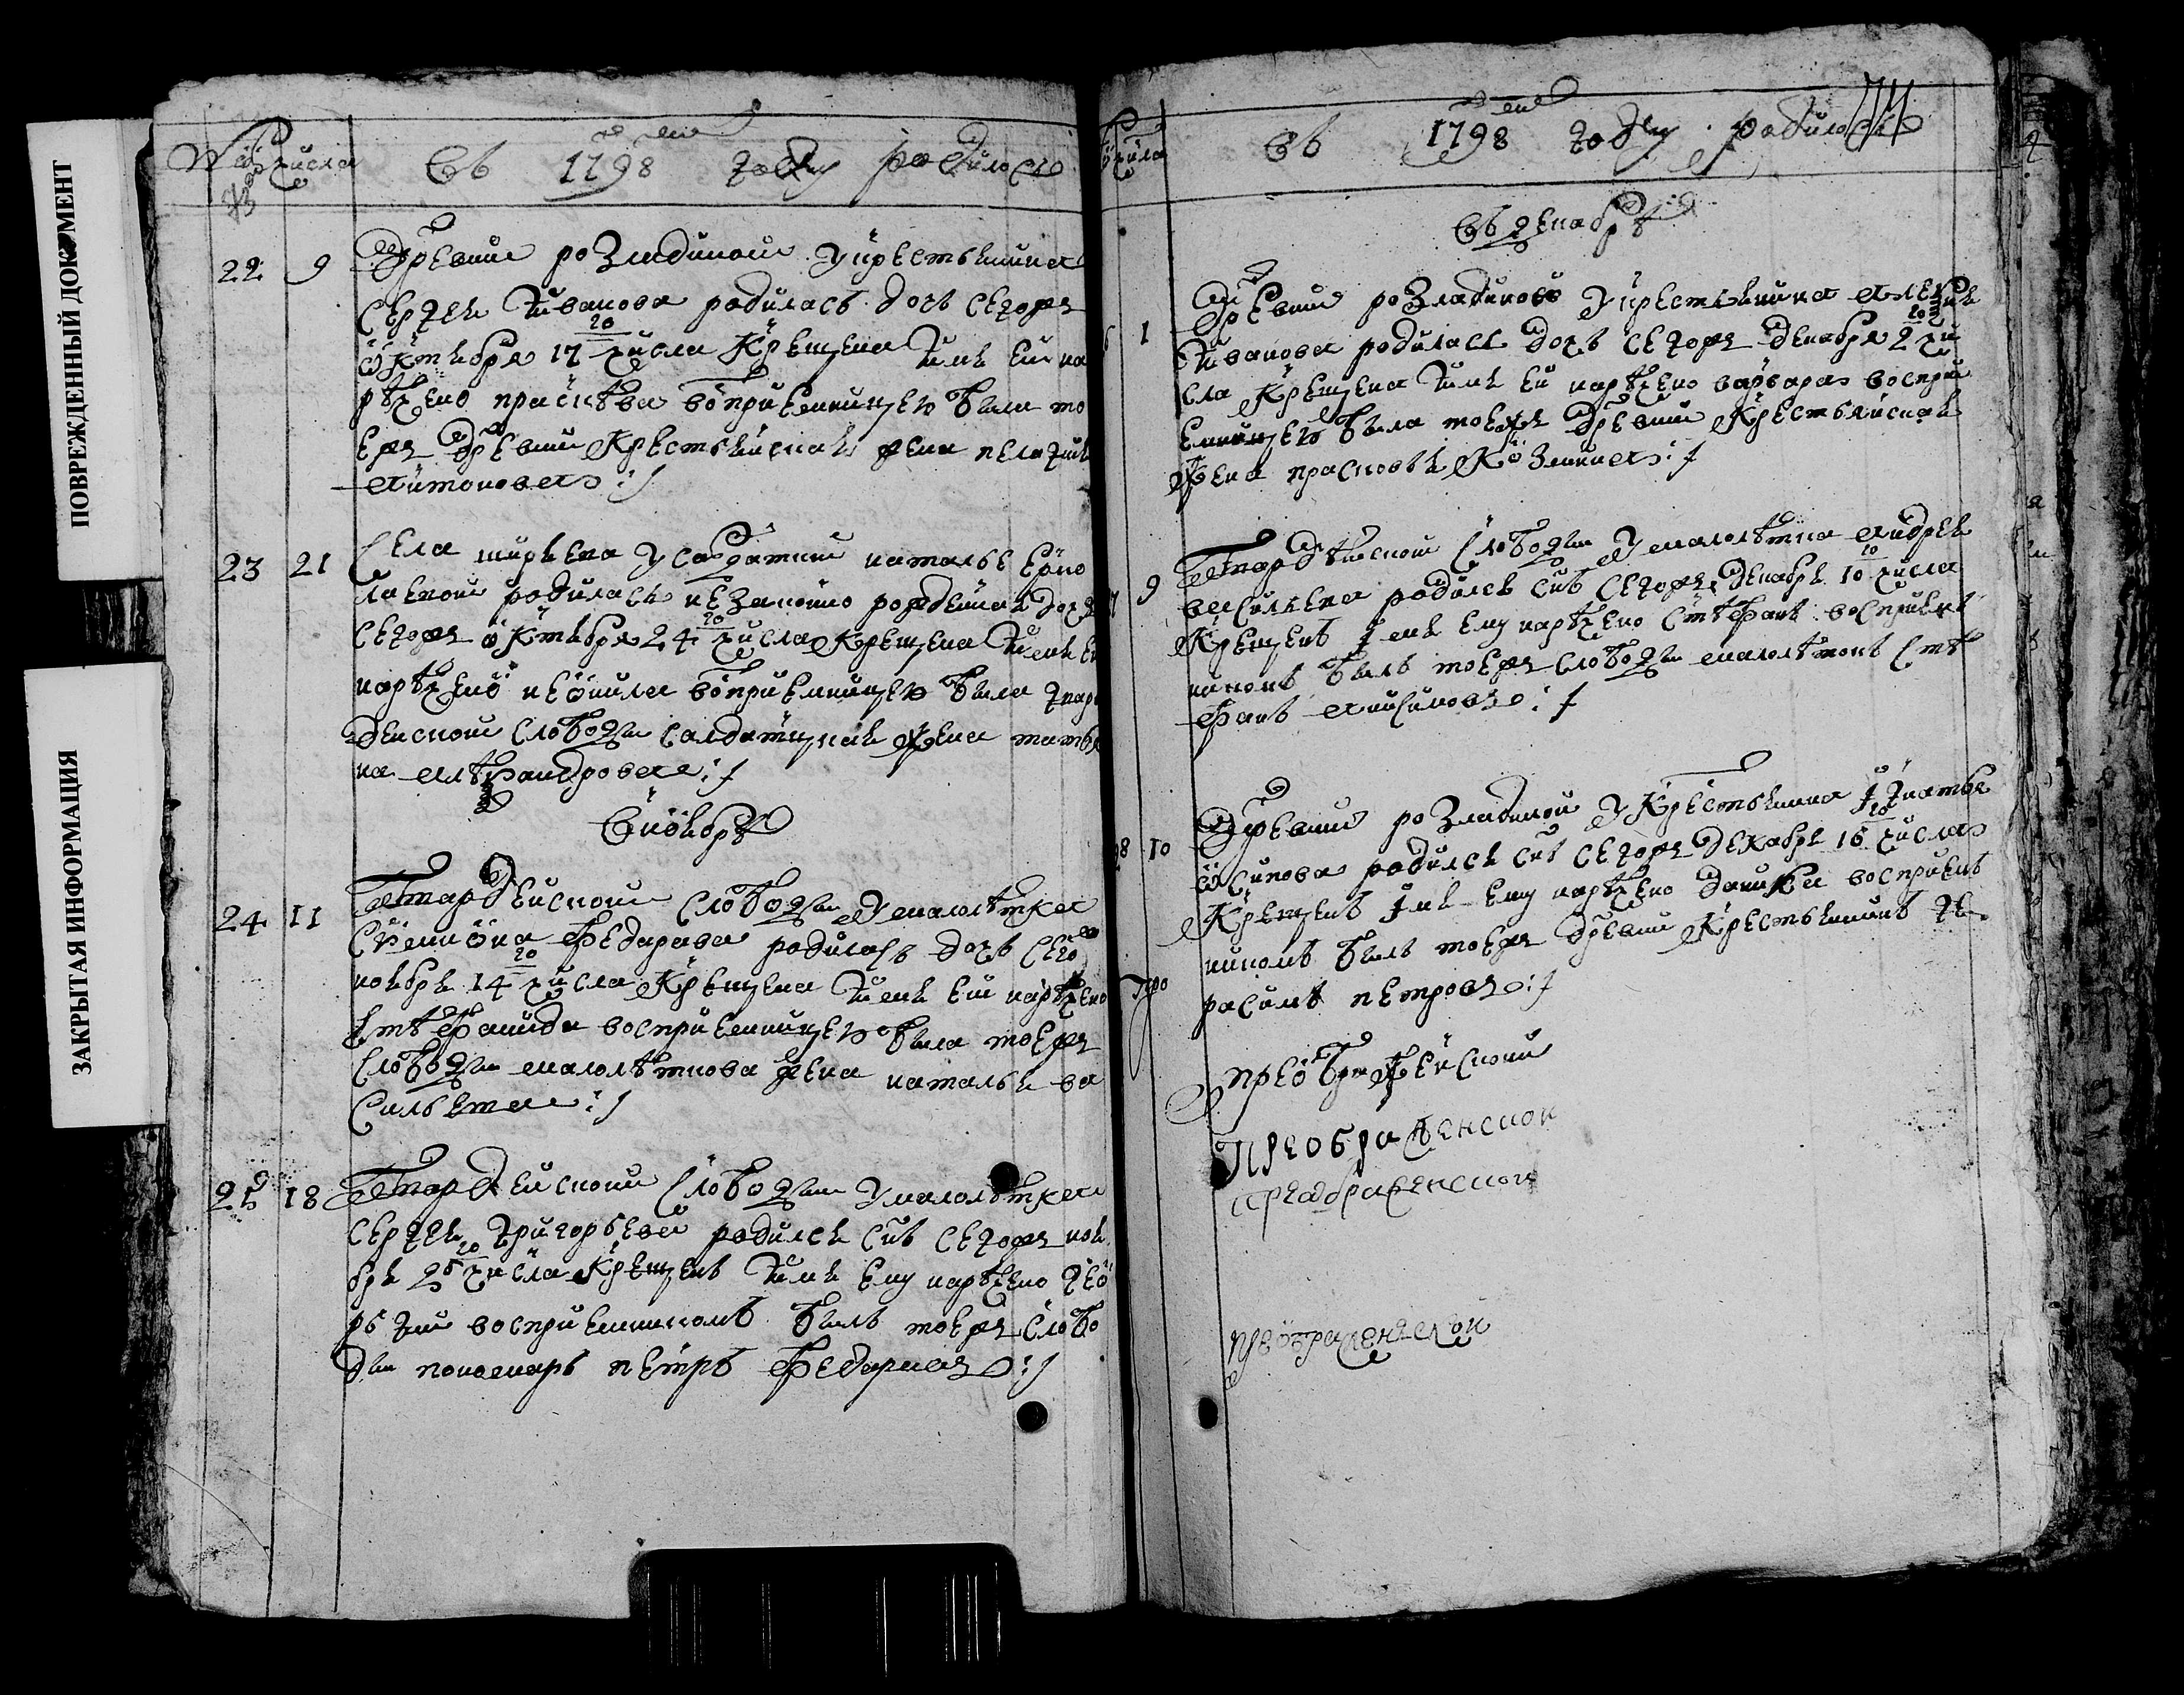 ПОВРЕЖДЕННЫЙ ДОКУМЕНТ
ЗАКРЫТАЯ ИНФОРМАЦИЯ
числа
Въ 1798 году родилось
22 9 Древни розладинои у крестьянина
Сергея Иванова родилась дочь сегожъ
октября 17го числа крещена имя ей на
рѣчено восприемницею была то
ежъ древни крестьянская жена пелагия
антонова
23 21 Села ширяева у салдатки наталье ермо
лаевой родилась незаконно рожденая дочь
сегожъ октября 24го числа крещена имя ей
нарѣчено неонила восприемницею была гвар
дейской слободы салдатская жена татья
на
В ноябрѣ
24 11 Гвардейской слободы у малолѣтка
Симиона Федарава родилась дочь сего
ноября 14го числа крещена имя ей нарѣчено
Стѣфанида восприемницею была тоежъ
слободы малолѣткова жена наталья ва
сильева
25 18 Гвардейской слободы у малолѣтка
Сергея Григорьева родился сиъ сегожъ ноя
бря 25го числа крещенъ имя ему нарѣчено гео
ргий восприемникомъ былъ тоежъ слобо
ды пономарь петръ Федаровъ
числа
Въ 1798 году родилось
74
Въ декабрѣ
1 Древни розладиной у крестьянина алексия
Иванова родилась дочь сегожъ декабря 2го чи
сла крещена имя ей нарѣчено варвара воспри
емницею была тоежъ древни крестьянская
жена прасковья Козмина
9 Гвардейской слободы у малолѣтка андрея
васильева родился сиъ сегожъ декабря 10го числа
крещенъ имя ему нарѣчено Стѣфанъ восприем
никомъ былъ тоежъ слободы малолѣтокъ Стѣ
фанъ анисимовъ
28 10 Древни розладиной у крестьянина Игнатья
осипова родился сиъ сегожъ декабря 16го числа
крещенъ имя ему нарѣчено данила восприем
никомъ былъ тоежъ древни крестьянинъ ге
расимъ петровъ
преображенской
Преображенской
преображенской
преображенской